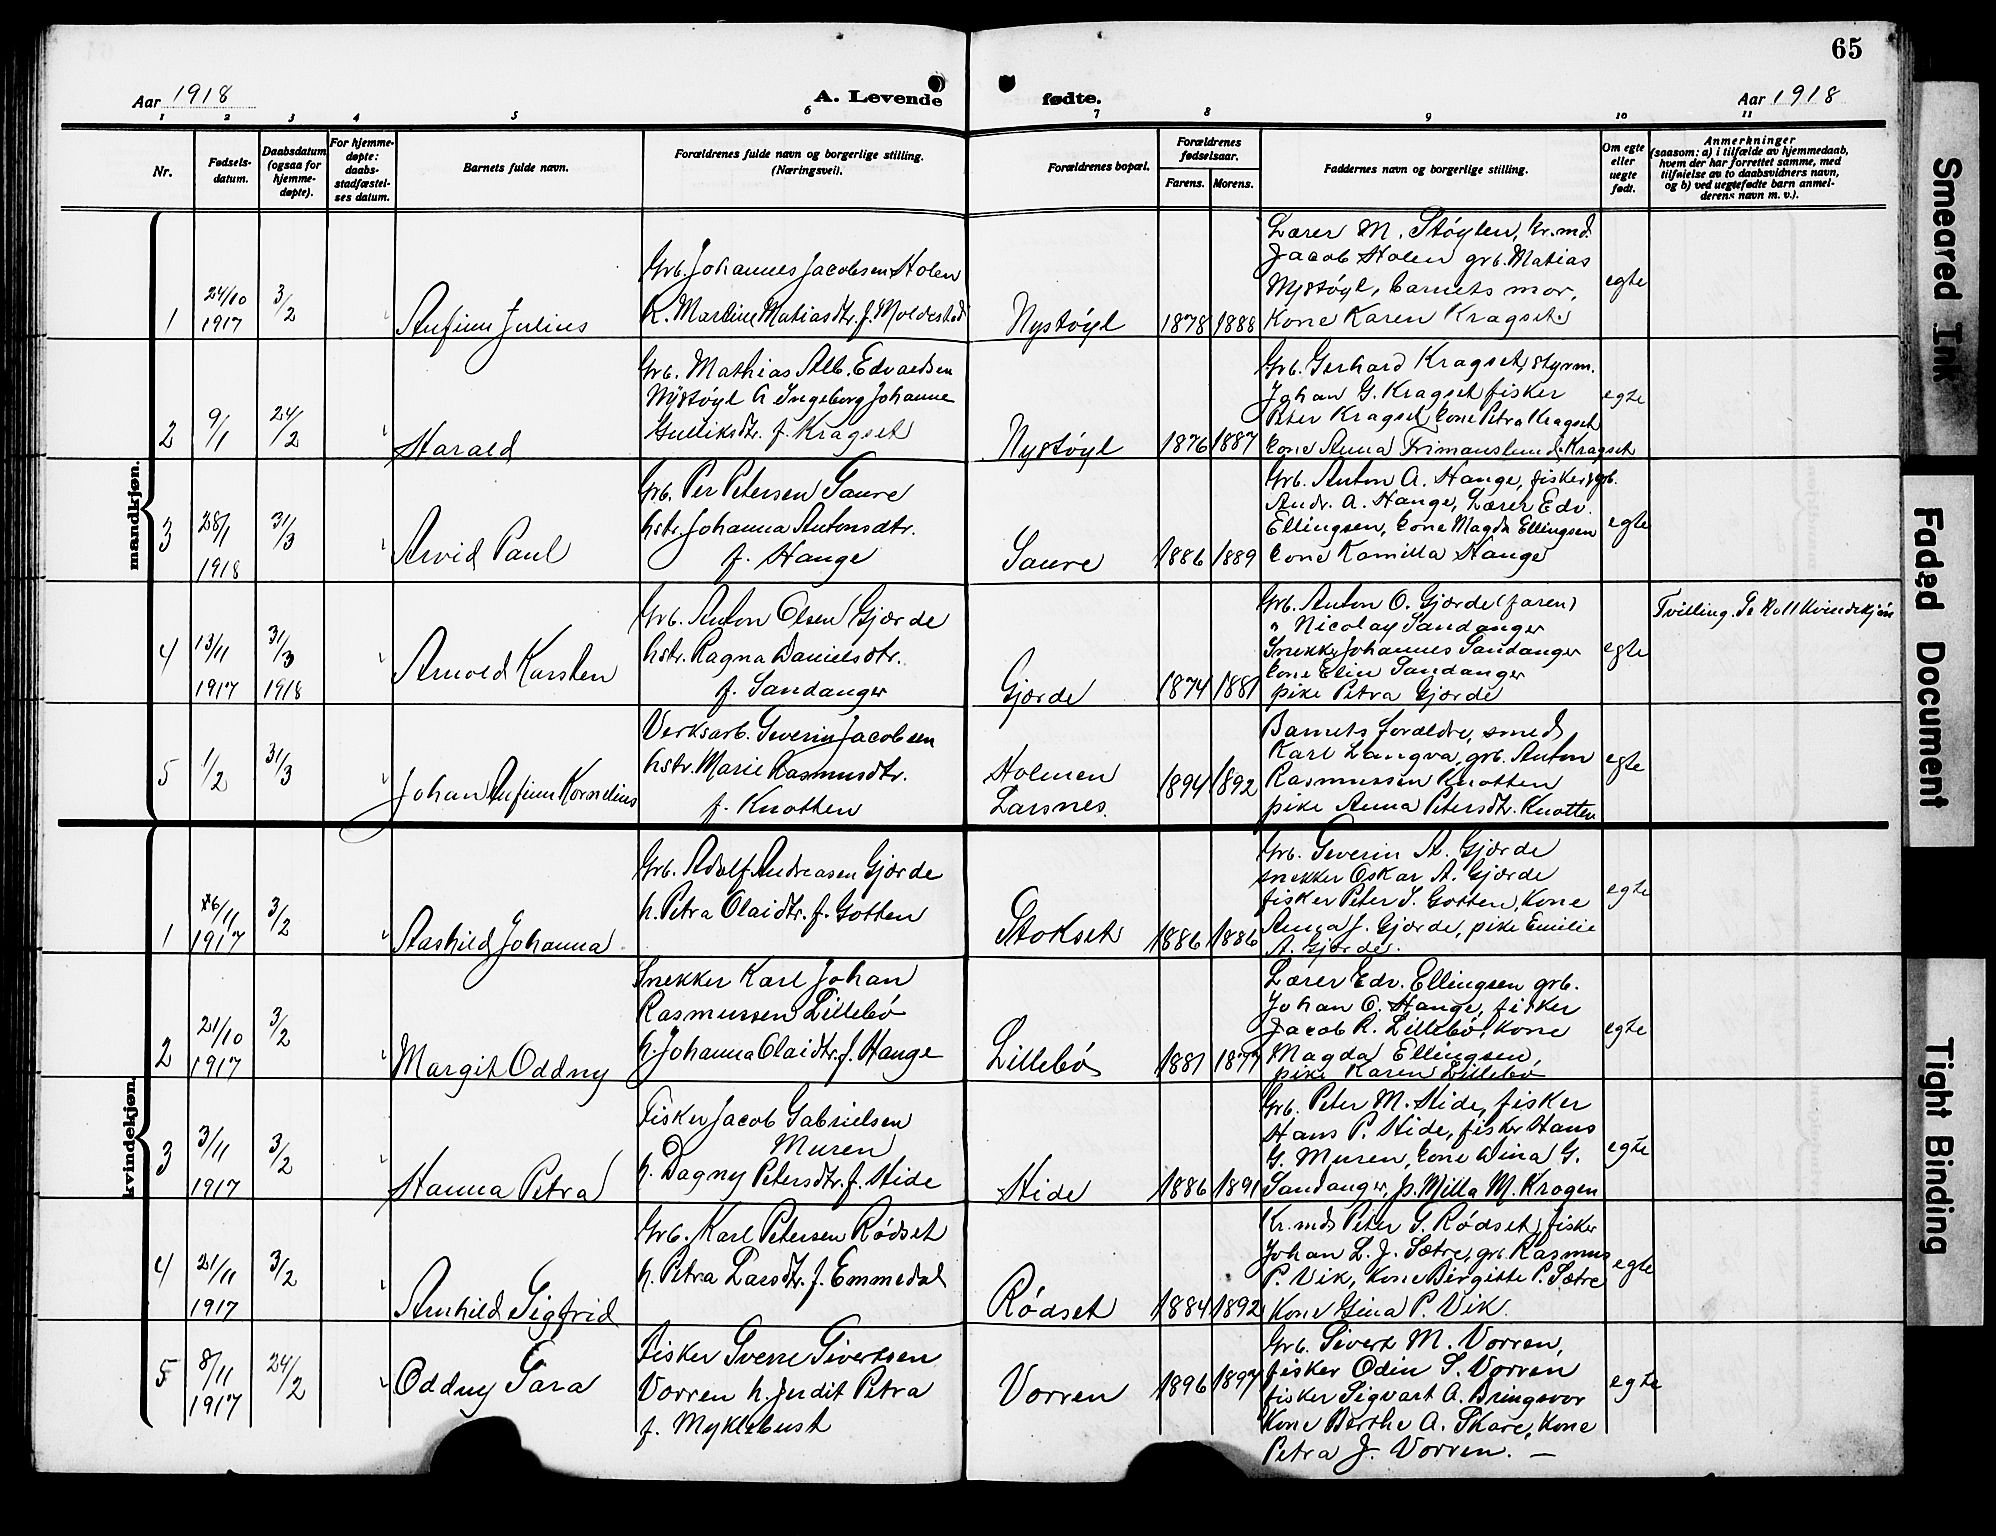 65
Aar 1918
A. Levende
fødte.
Aar 1918
1 2 3 4 5 6 7 8 9 10 11
Nr.
Fødsels-
datum.
Daabsdatum
(ogsaa for
hjemme-
døpte).
For hjemme-
døpte:
daabs-
stadfæstel-
ses datum.
Barnets fulde navn.
Forældrenes fulde navn og borgerlige stilling.
(Næringsvei).
Forældrenes bopæl.
Forældrenes
fødselsaar.
Farens. Morens.
Faddernes navn og borgerlige stilling.
Om egte
eller
uegte
født.
Anmerkninger
(saasom: a) i tilfælde av hjemmedaab,
hvem der har forrettet samme, med
tilføielse av to daabsvidners navn,
og b) ved uegtefødte barn anmel-
derens navn m. v.).
mandkjøn.
1
24/10
1917
3/2
Anfinn Julius
Grb. Johannes Jacobsen Holen
K. Martine Matiasdtr. f. Moldestad
Nystøyl
1878 1888
Lærer M. Støylen, kr.md.
Jacob Holen grb. Matias
Nystøyl, barnets mor,
Kone Karen Kragset.
egte
2
9/1
24/2
Harald
Grb. Mathias Alb. Edvardsen
Nystøyl h Ingeborg Johanne
Gulliksdtr. f. Kragset
Nystøyl
1876 1887
Grb. Gerhard Kragset, styrm.
Johan G. Kragset fisker
Peter Kragset, kone Petra Kragset
kone Anna Frimanslund Kragset
egte
3
28/1
1918
31/3
Arvid Paul
Grb. Per Petersen Saure
hstr. Johanna Antonsdtr.
f. Hauge
Saure
1886 1889
Grb. Anton A. Hauge, fisker grb.
Andr. A. Hauge, Lærer Edv.
Ellingsen, kone Magda Ellingsen
kone Kamilla Hauge
egte
4
13/11
1917
31/3
1918
Arnold Karsten
Grb. Anton Olsen Gjørde
hstr. Ragna Danielsdtr.
f. Sandanger
Gjørde
1874 1881
Grb. Anton O. Gjørde (faren)
" Nicolay Sandanger
Snekker Johannes Sandanger
kone Elin Sandanger
pike Petra Gjørde
egte
Tvilling. Se No11 Kvindekjøn
5
1/2
31/3
Johan Anfinn Kornelius
Verksarb. Severin Jacobsen
hstr. Marie Rasmusdtr.
f. Knotten
Holmen
Larsnes.
1894 1892
Barnets forældre, smed
Karl Langva, grb. Anton
Rasmussen Knotten
pike Anna Petersdtr. Knotten
egte
kvindekjøn.
1
26/11
1917
3/2
Aashild Johanna
Grb. Adolf Andreasen Gjørde
h. Petra Olaidtr. f. Gotten
Stokset
1886 1886
Grb. Severin A. Gjørde
snekker Oskar A. Gjørde
fisker Peter S. Gotten, Kone
Anna J. Gjørde, pike Emilie
A. Gjørde.
egte
2
21/10
1917
3/2
Margit Oddny
Snekker Karl Johan
Rasmussen Lillebø
h. Johanna Olaidtr. f. Hauge
Lillebø
1881 1877
Lærer Edv. Ellingsen grb.
Johan O. Hauge, fisker
Jacob R. Lillebø, kone
Magda Ellingsen,
pike Karen Lillebø
egte
3
3/11
1917
3/2
Hanna Petra
Fisker Jacob Gabrielsen
Muren
h. Dagny Petersdtr. f. Hide
Hide
1886 1891
Grb. Peter M. Hide, fisker
Hans P. Hide, fisker Hans
G. Muren, kone Dina G.
Sandanger, p. Milla M. Krogen
egte
4
21/11
1917
3/2
Arnhild Sigfrid
Grb. Karl Petersen Rødset
h. Petra Larsdtr. f. Emmedal
Rødset
1884 1892
Kr.md Peter S. Rødset, fisker
Johan L. J. Sætre, grb. Rasmus
P. Vik, Kone Birgitte P. Sætre
Kone Gina P. Vik.
egte
5
8/11
1917
24/2
Oddny Sara
Fisker Sverre Sivertsen
Vorren h. Judit Petra
f. Myklebust
Vorren
1896 1897
Grb. Sivert M. Vorren,
fisker Odin S. Vorren
fisker Sigvart A. Bringsvor
Kone Berthe A. Skare, Kone
Petra J. Vorren. —
egte
Smeared Ink
Faded Document
Tight Binding